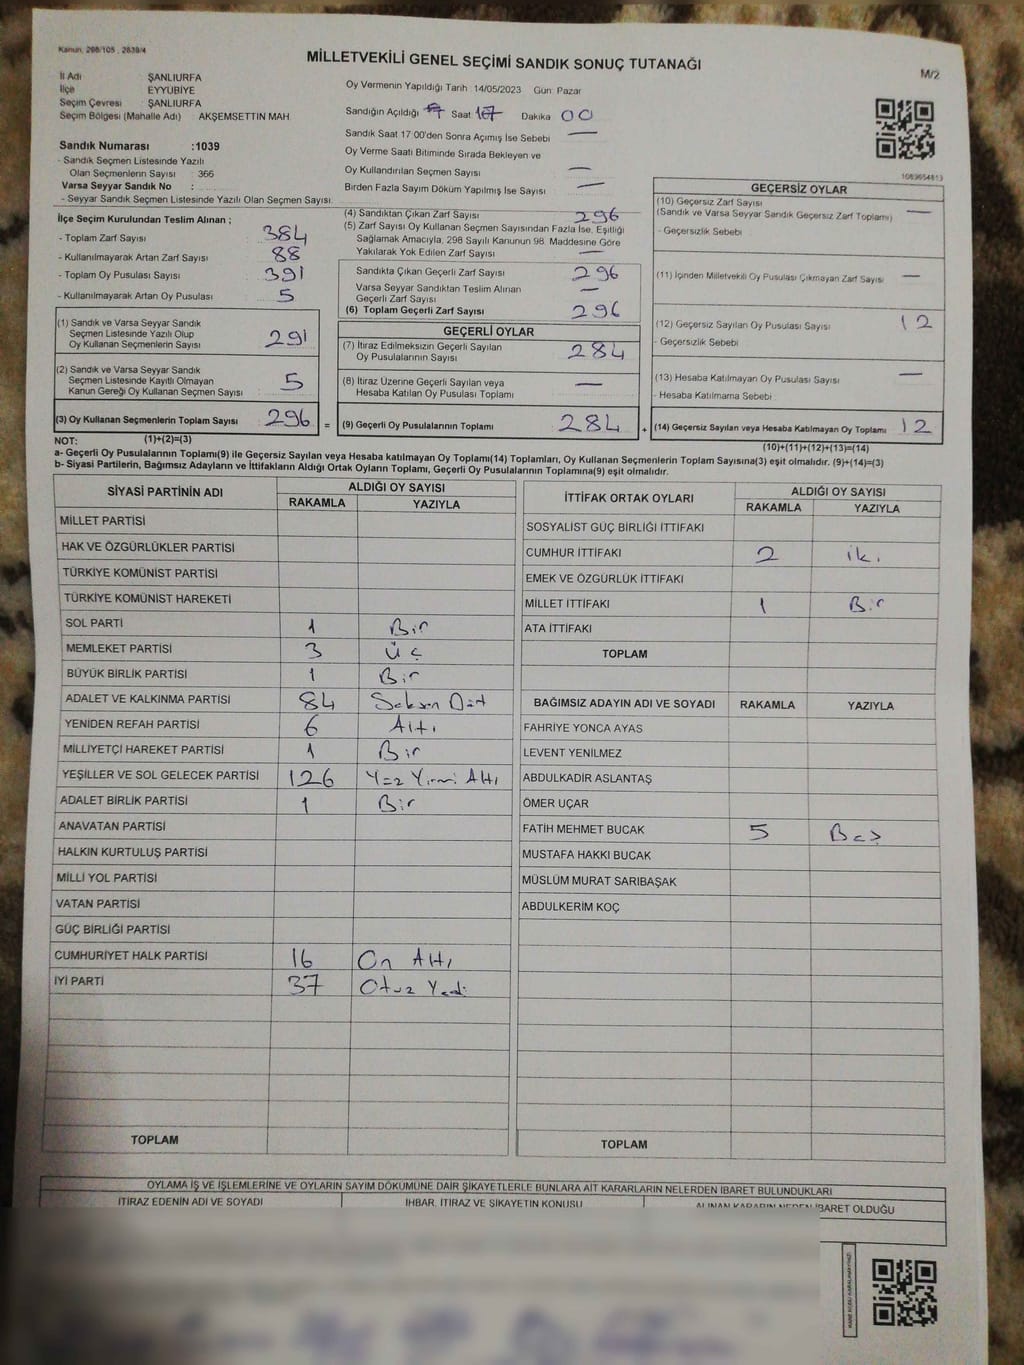 Kanun, 298/105 , 2839/4
MİLLETVEKİLİ GENEL SEÇİMİ SANDIK SONUÇ TUTANAĞI
M/2
İl Adı ŞANLIURFA
İlçe EYYÜBİYE
Seçim Çevresi : ŞANLIURFA
Seçim Bölgesi (Mahalle Adı) : AKŞEMSETTİN MAH.
Oy Vermenin Yapıldığı Tarih :14/05/2023 Gün: Pazar
Sandığın Açıldığı Saat 17 Dakika 00
Sandık Saat 17:00'den Sonra Açımış İse Sebebi —
Oy Verme Saati Bitiminde Sırada Bekleyen ve
Oy Kullandırılan Seçmen Sayısı —
Birden Fazla Sayım Döküm Yapılmış İse Sayısı —
Sandık Numarası :1039
- Sandık Seçmen Listesinde Yazılı
Olan Seçmenlerin Sayısı : 366
Varsa Seyyar Sandık No :
- Seyyar Sandık Seçmen Listesinde Yazılı Olan Seçmen Sayısı:
İlçe Seçim Kurulundan Teslim Alınan ;
- Toplam Zarf Sayısı : 384
- Kullanılmayarak Artan Zarf Sayısı : 88
- Toplam Oy Pusulası Sayısı : 391
- Kullanılmayarak Artan Oy Pusulası : 5
(1) Sandık ve Varsa Seyyar Sandık
Seçmen Listesinde Yazılı Olup
Oy Kullanan Seçmenlerin Sayısı 291
(2) Sandık ve Varsa Seyyar Sandık
Seçmen Listesinde Kayıtlı Olmayan
Kanun Gereği Oy Kullanan Seçmen Sayısı 5
(3) Oy Kullanan Seçmenlerin Toplam Sayısı 296 =
(4) Sandıktan Çıkan Zarf Sayısı 296
(5) Zarf Sayısı Oy Kullanan Seçmen Sayısından Fazla İse, Eşitliği
Sağlamak Amacıyla, 298 Sayılı Kanunun 98. Maddesine Göre
Yakılarak Yok Edilen Zarf Sayısı —
Sandıkta Çıkan Geçerli Zarf Sayısı 296
Varsa Seyyar Sandıktan Teslim Alınan
Geçerli Zarf Sayısı —
(6) Toplam Geçerli Zarf Sayısı 296
GEÇERLİ OYLAR
(7) İtiraz Edilmeksizin Geçerli Sayılan
Oy Pusulalarının Sayısı 284
(8) İtiraz Üzerine Geçerli Sayılan veya
Hesaba Katılan Oy Pusulası Toplamı —
(9) Geçerli Oy Pusulalarının Toplamı 284 +
1089654813
GEÇERSİZ OYLAR
(10) Geçersiz Zarf Sayısı
(Sandık ve Varsa Seyyar Sandık Geçersiz Zarf Toplamı) —
- Geçersizlik Sebebi
(11) İçinden Milletvekili Oy Pusulası Çıkmayan Zarf Sayısı —
(12) Geçersiz Sayılan Oy Pusulası Sayısı 12
- Geçersizlik Sebebi
(13) Hesaba Katılmayan Oy Pusulası Sayısı —
- Hesaba Katılmama Sebebi
(14) Geçersiz Sayılan veya Hesaba Katılmayan Oy Toplamı 12
NOT: (1)+(2)=(3)
(10)+(11)+(12)+(13)=(14)
a- Geçerli Oy Pusulalarının Toplamı(9) ile Geçersiz Sayılan veya Hesaba katılmayan Oy Toplamı(14) Toplamları, Oy Kullanan Seçmenlerin Toplam Sayısına(3) eşit olmalıdır. (9)+(14)=(3)
b- Siyasi Partilerin, Bağımsız Adayların ve İttifakların Aldığı Ortak Oyların Toplamı, Geçerli Oy Pusulalarının Toplamına(9) eşit olmalıdır.
SİYASİ PARTİNİN ADI ALDIĞI OY SAYISI
RAKAMLA YAZIYLA
MİLLET PARTİSİ
HAK VE ÖZGÜRLÜKLER PARTİSİ
TÜRKİYE KOMÜNİST PARTİSİ
TÜRKİYE KOMÜNİST HAREKETİ
SOL PARTİ 1 Bir
MEMLEKET PARTİSİ 3 Üç
BÜYÜK BİRLİK PARTİSİ 1 Bir
ADALET VE KALKINMA PARTİSİ 84 Seksen Dört
YENİDEN REFAH PARTİSİ 6 Altı
MİLLİYETÇİ HAREKET PARTİSİ 1 Bir
YEŞİLLER VE SOL GELECEK PARTİSİ 126 Yüz Yirmi Altı
ADALET BİRLİK PARTİSİ 1 Bir
ANAVATAN PARTİSİ
HALKIN KURTULUŞ PARTİSİ
MİLLİ YOL PARTİSİ
VATAN PARTİSİ
GÜÇ BİRLİĞİ PARTİSİ
CUMHURİYET HALK PARTİSİ 16 On Altı
İYİ PARTİ 37 Otuz Yedi
TOPLAM
İTTİFAK ORTAK OYLARI ALDIĞI OY SAYISI
RAKAMLA YAZIYLA
SOSYALİST GÜÇ BİRLİĞİ İTTİFAKI
CUMHUR İTTİFAKI 2 iki
EMEK VE ÖZGÜRLÜK İTTİFAKI
MİLLET İTTİFAKI 1 Bir
ATA İTTİFAKI
TOPLAM
BAĞIMSIZ ADAYIN ADI VE SOYADI RAKAMLA YAZIYLA
FAHRİYE YONCA AYAS
LEVENT YENİLMEZ
ABDULKADİR ASLANTAŞ
ÖMER UÇAR
FATİH MEHMET BUCAK 5 Beş
MUSTAFA HAKKI BUCAK
MÜSLÜM MURAT SARIBAŞAK
ABDULKERİM KOÇ
TOPLAM
OYLAMA İŞ VE İŞLEMLERİNE VE OYLARIN SAYIM DÖKÜMÜNE DAİR ŞİKAYETLERLE BUNLARA AİT KARARLARIN NELERDEN İBARET BULUNDUKLARI
İTİRAZ EDENİN ADI VE SOYADI İHBAR, İTİRAZ VE ŞİKAYETİN KONUSU ALINAN KARARIN NEDEN İBARET OLDUĞU